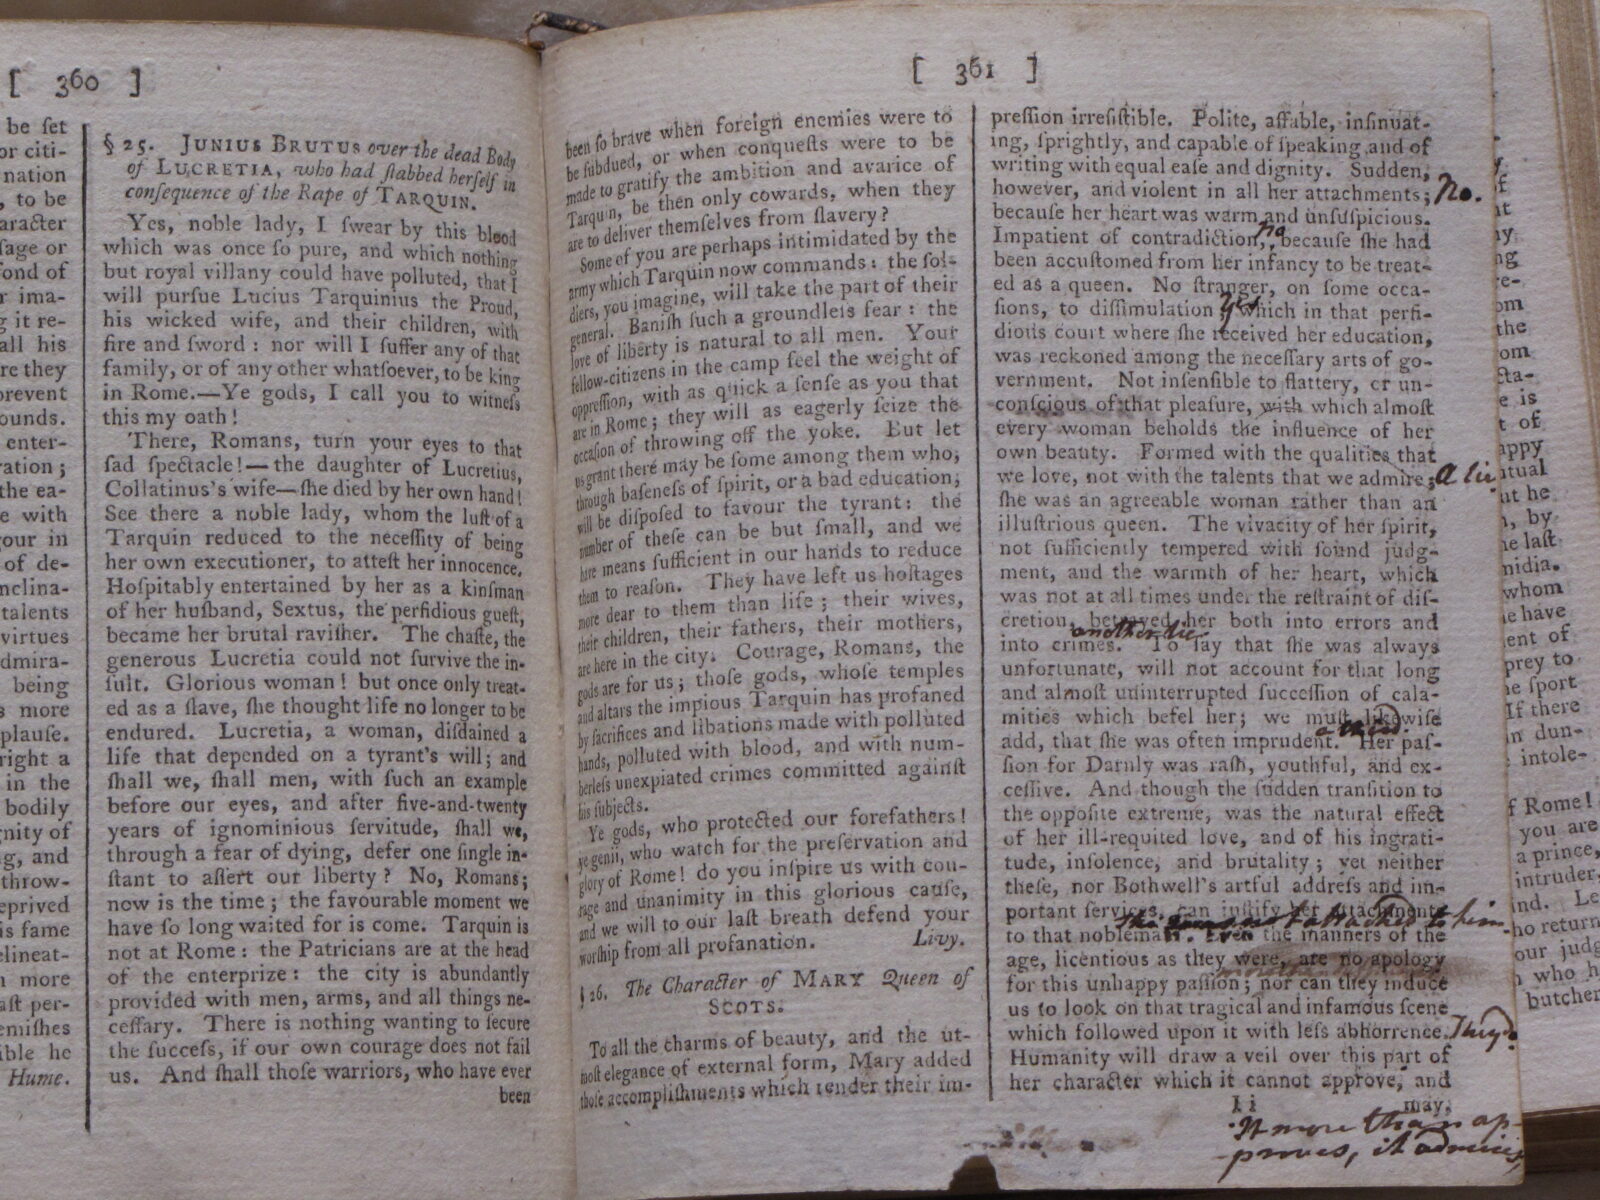 [ 360 ]
be ſet
or citi-
nation
, to be
aracter
ſage or
fond of
r ima-
g it re-
all his
re they
prevent
ounds.
enter-
ration ;
the ea-
e with
our in
of de-
nclina-
talents
virtues
dmira-
being
s more
plauſe.
right a
in the
bodily
gnity of
g, and
throw-
eprived
is fame
elineat-
n more
aſt per-
emiſhes
ible he
Hume.
§ 25. JUNIUS BRUTUS over the dead Body
of LUCRETIA, who had ſtabbed herſelf in
conſequence of the Rape of TARQUIN.
Yes, noble lady, I ſwear by this blood
which was once ſo pure, and which nothing
but royal villany could have polluted, that I
will purſue Lucius Tarquinius the Proud,
his wicked wife, and their children, with
fire and ſword : nor will I ſuffer any of that
family, or of any other whatſoever, to be king
in Rome.—Ye gods, I call you to witneſs
this my oath !
There, Romans, turn your eyes to that
ſad ſpectacle!—the daughter of Lucretius,
Collatinus's wife—ſhe died by her own hand!
See there a noble lady, whom the luſt of a
Tarquin reduced to the neceſſity of being
her own executioner, to atteſt her innocence.
Hoſpitably entertained by her as a kinſman
of her huſband, Sextus, the perfidious gueſt,
became her brutal raviſher. The chaſte, the
generous Lucretia could not ſurvive the in-
ſult. Glorious woman ! but once only treat-
ed as a ſlave, ſhe thought life no longer to be
endured. Lucretia, a woman, diſdained a
life that depended on a tyrant's will; and
ſhall we, ſhall men, with ſuch an example
before our eyes, and after five-and-twenty
years of ignominious ſervitude, ſhall we,
through a fear of dying, defer one ſingle in-
ſtant to aſſert our liberty ? No, Romans;
now is the time ; the favourable moment we
have ſo long waited for is come. Tarquin is
not at Rome : the Patricians are at the head
of the enterprize : the city is abundantly
provided with men, arms, and all things ne-
ceſſary. There is nothing wanting to ſecure
the ſucceſs, if our own courage does not fail
us. And ſhall thoſe warriors, who have ever
been
[ 361 ]
been ſo brave when foreign enemies were to
be ſubdued, or when conqueſts were to be
made to gratify the ambition and avarice of
Tarquin, be then only cowards, when they
are to deliver themſelves from ſlavery ?
Some of you are perhaps intimidated by the
army which Tarquin now commands : the ſol-
diers, you imagine, will take the part of their
general. Baniſh ſuch a groundleſs fear : the
love of liberty is natural to all men. Your
fellow-citizens in the camp feel the weight of
oppreſſion, with as quick a ſenſe as you that
are in Rome ; they will as eagerly ſeize the
occaſion of throwing off the yoke. But let
us grant there may be ſome among them who,
through baſeneſs of ſpirit, or a bad education,
will be diſpoſed to favour the tyrant : the
number of theſe can be but ſmall, and we
have means ſufficient in our hands to reduce
them to reaſon. They have left us hoſtages
more dear to them than life ; their wives,
their children, their fathers, their mothers,
are here in the city. Courage, Romans, the
gods are for us ; thoſe gods, whoſe temples
and altars the impious Tarquin has profaned
by ſacrifices and libations made with polluted
hands, polluted with blood, and with num-
berleſs unexpiated crimes committed againſt
his ſubjects.
Ye gods, who protected our forefathers !
ye genii, who watch for the preſervation and
glory of Rome ! do you inſpire us with cou-
rage and unanimity in this glorious cauſe,
and we will to our laſt breath defend your
worſhip from all profanation. Livy.
§ 26. The Character of MARY Queen of
SCOTS.
To all the charms of beauty, and the ut-
moſt elegance of external form, Mary added
thoſe accompliſhments which render their im-
preſſion irreſiſtible. Polite, affable, inſinuat-
ing, ſprightly, and capable of ſpeaking and of
writing with equal eaſe and dignity. Sudden,
however, and violent in all her attachments; No.
becauſe her heart was warm and unſuſpicious.
no
Impatient of contradiction, becauſe ſhe had
been accuſtomed from her infancy to be treat-
ed as a queen. No ſtranger, on ſome occa-
yes
ſions, to diſſimulation; which in that perfi-
dious court where ſhe received her education,
was reckoned among the neceſſary arts of go-
vernment. Not inſenſible to flattery, or un-
conſcious of that pleaſure, with which almoſt
every woman beholds the influence of her
own beauty. Formed with the qualities that
we love, not with the talents that we admire; A lie.
ſhe was an agreeable woman rather than an
illuſtrious queen. The vivacity of her ſpirit,
not ſufficiently tempered with ſound judg-
ment, and the warmth of her heart, which
was not at all times under the reſtraint of diſ-
cretion, betrayed her both into errors and
another lie
into crimes. To ſay that ſhe was always
unfortunate, will not account for that long
and almoſt uninterrupted ſucceſſion of cala-
mities which befel her; we muſt likewiſe
a third.
add, that ſhe was often imprudent. Her paſ-
ſion for Darnly was raſh, youthful, and ex-
ceſſive. And though the ſudden tranſition to
the oppoſite extreme, was the natural effect
of her ill-requited love, and of his ingrati-
tude, inſolence, and brutality ; yet neither
theſe, nor Bothwell's artful addreſs and im-
portant ſervices, can juſtify her attachment
attached to him.
to that nobleman. Even the manners of the
age, licentious as they were, are no apology
for this unhappy paſſion; nor can they induce
us to look on that tragical and infamous ſcene
which followed upon it with leſs abhorrence. They do.
Humanity will draw a veil over this part of
her character which it cannot approve, and
I i may,
It more than ap-
proves, it admires,
of
om
the
om
cta-
e is
t of
appy
utual
he
, by
he laſt
midia.
whom
e have
ent of
prey to
e ſport
If there
dun-
intole-
f Rome !
you are
a prince,
intruder,
ind. Le
ho return
our judg
who h
butcher